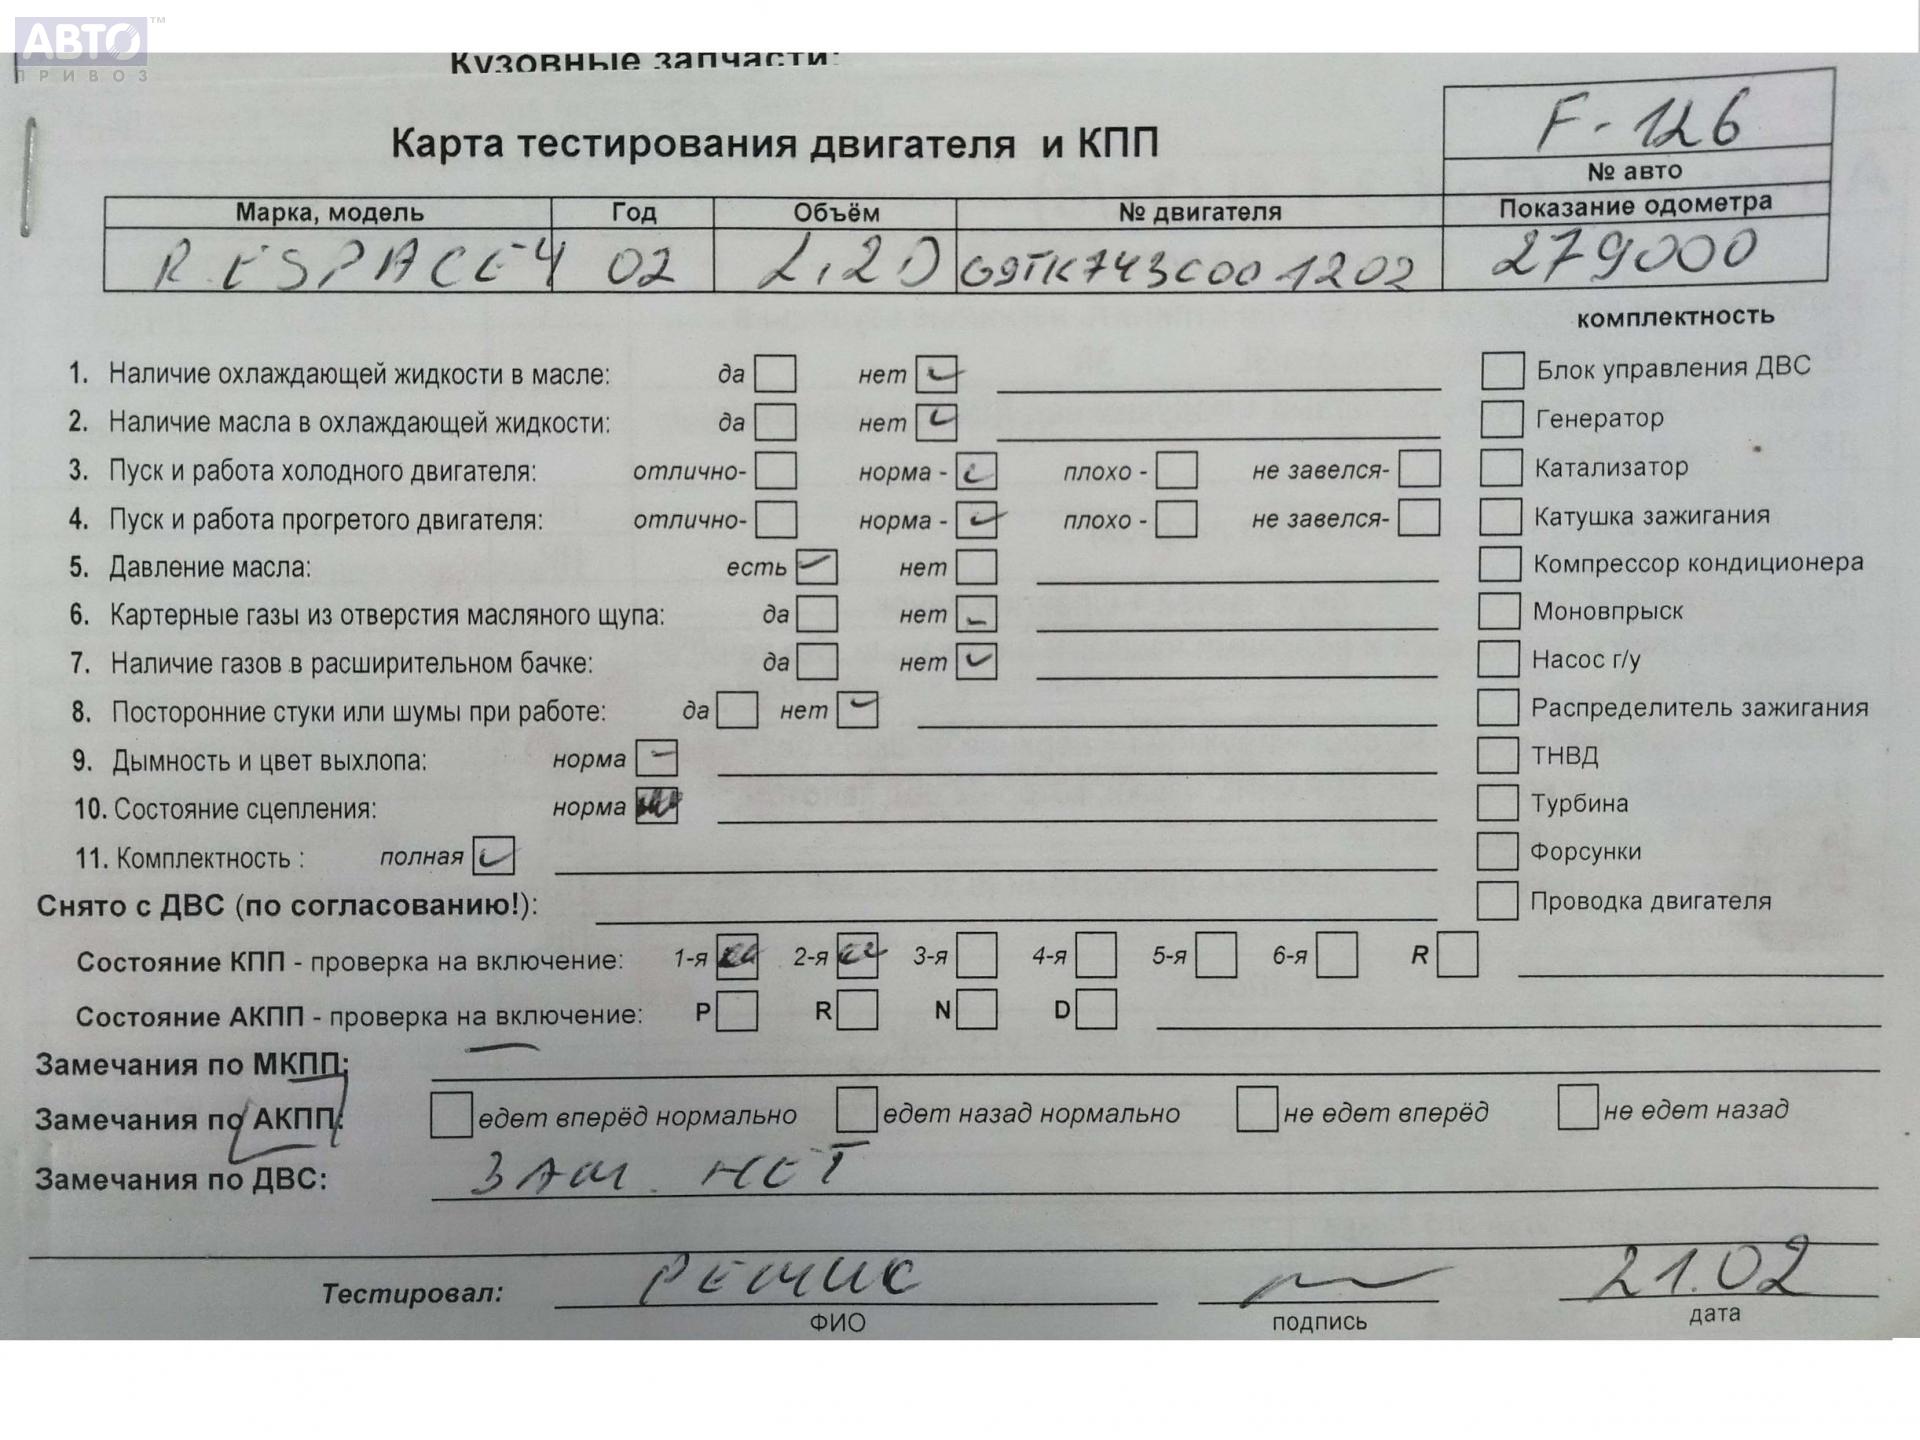 АВТО™
ПРИВОЗ
Кузовные запчасти:
Карта тестирования двигателя и КПП
F-126
№ авто
Марка, модель Год Объём № двигателя Показание одометра
R. ESPACE 4 02 2,2D G9TK743C001202 279000
комплектность
1. Наличие охлаждающей жидкости в масле: да нет Блок управления ДВС
2. Наличие масла в охлаждающей жидкости: да нет Генератор
3. Пуск и работа холодного двигателя: отлично- норма - плохо - не завелся- Катализатор
4. Пуск и работа прогретого двигателя: отлично- норма - плохо - не завелся- Катушка зажигания
5. Давление масла: есть нет Компрессор кондиционера
6. Картерные газы из отверстия масляного щупа: да нет Моновпрыск
7. Наличие газов в расширительном бачке: да нет Насос г/у
8. Посторонние стуки или шумы при работе: да нет Распределитель зажигания
9. Дымность и цвет выхлопа: норма ТНВД
10. Состояние сцепления: норма Турбина
11. Комплектность : полная Форсунки
Снято с ДВС (по согласованию!): Проводка двигателя
Состояние КПП - проверка на включение: 1-я 2-я 3-я 4-я 5-я 6-я R
Состояние АКПП - проверка на включение: P R N D
Замечания по МКПП:
Замечания по АКПП: едет вперёд нормально едет назад нормально не едет вперёд не едет назад
Замечания по ДВС: ЗАМ. НЕТ
Тестировал: 21.02
ФИО подпись дата